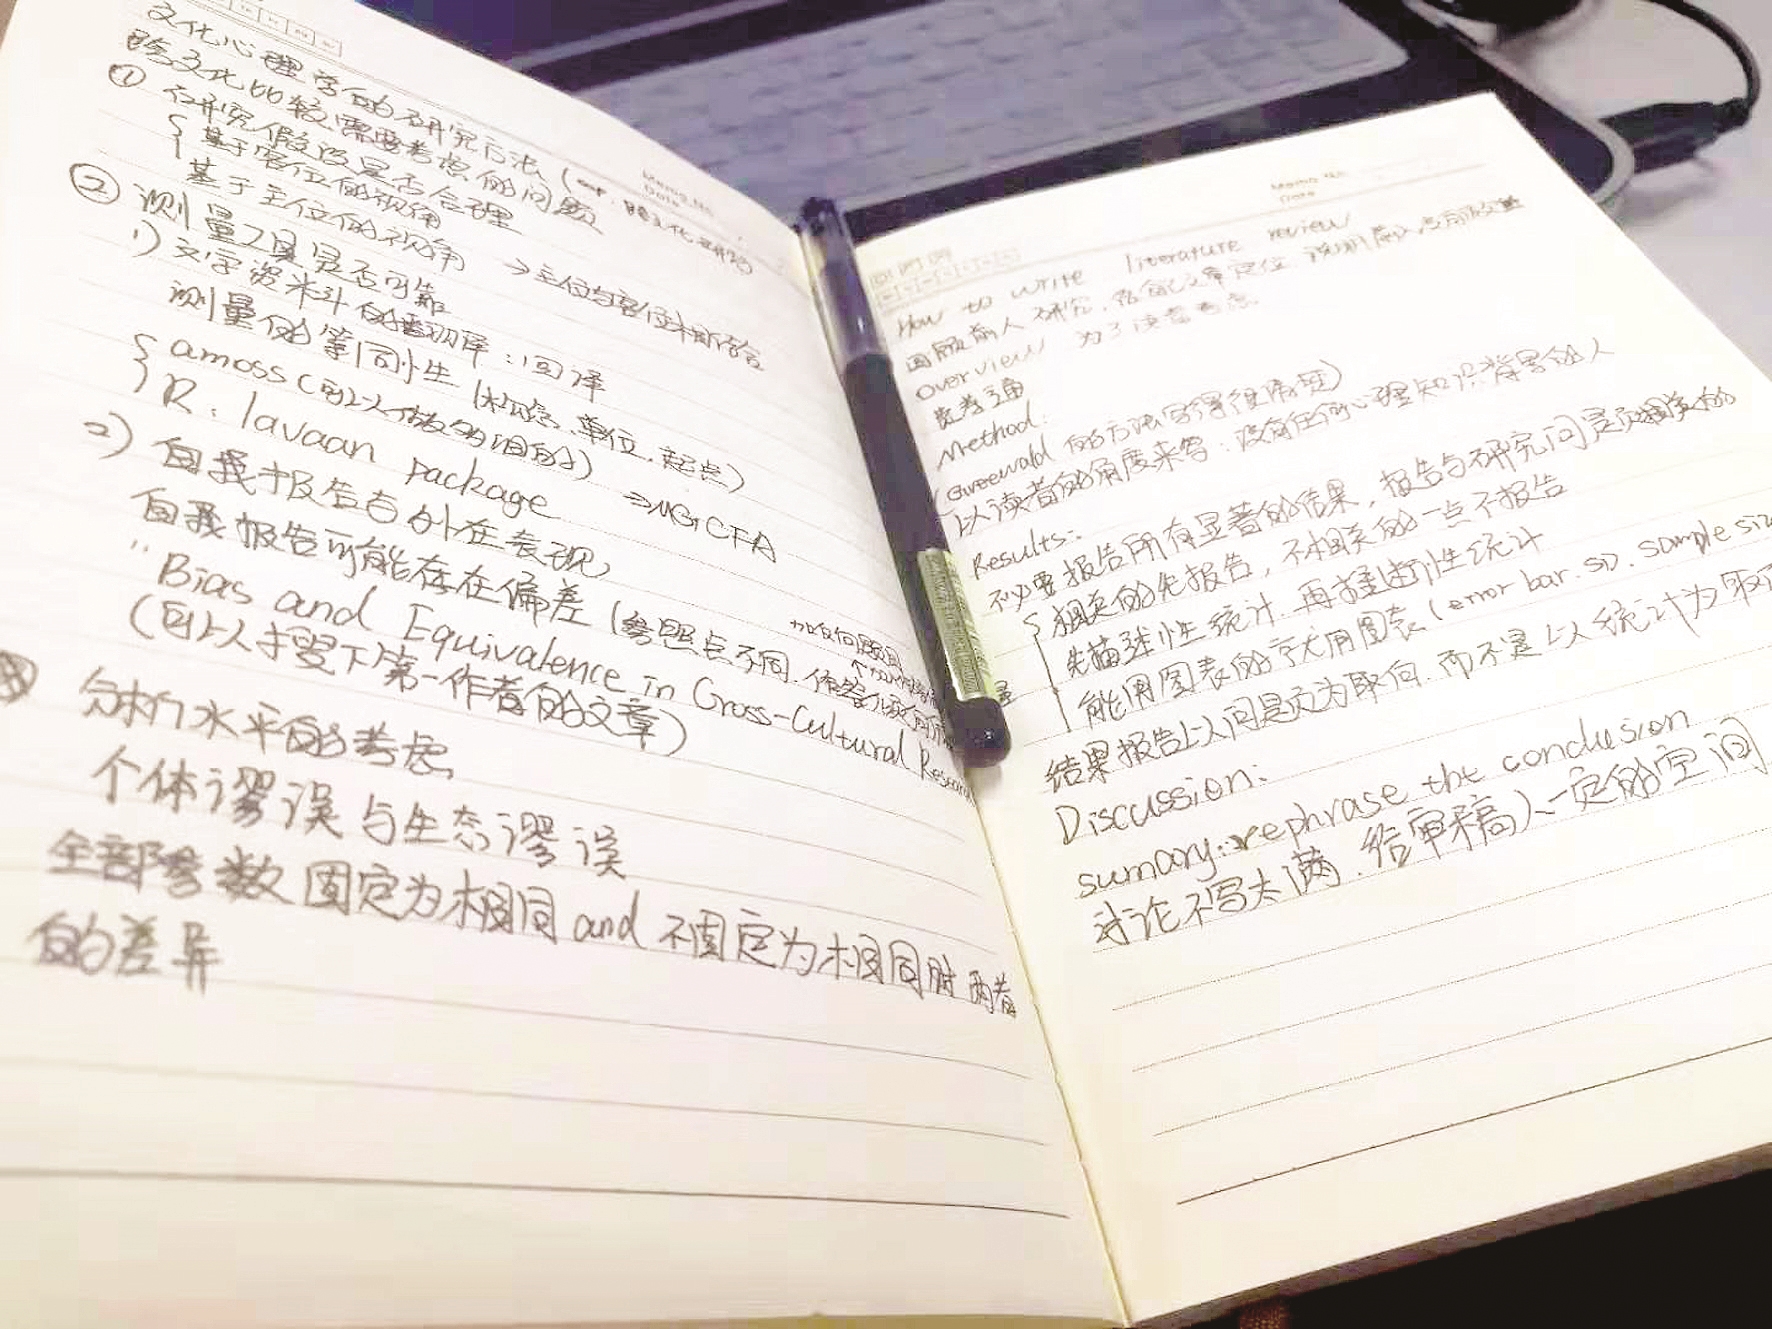 文化心理学的研究方法(esp. 跨文化研究)
跨文化比较需要考虑的问题
① 研究假设是否合理
基于客位的视角
基于主位的视角 → 主位与客位相结合
② 测量工具是否可靠
1) 文字资料的翻译:回译
测量的等同性(构念、单位、起点)
amoss(可以人做的目的) → MGCFA
R. lavaan package
2) 自我报告与外在表现
自我报告可能存在偏差(参照点不同.
"Bias and Equivalence in Cross-Cultural Research
(可以搜下第一作者的文章)
分析水平的考虑
个体谬误与生态谬误
全部参数固定为相同 and 不固定为相同时两者
的差异
Memo No.
Date
Memo No.
Date
How to write literature review
回顾前人研究,
overview 为了读者考虑
Method:
(Greenwald 的方法写得很清楚)
以读者的角度来写:没有任何心理知识背景的人
Results:
不必要报告所有显著的结果,报告与研究问题相关的
相关的先报告,不相关的一点不报告
先描述性统计.再推断性统计
能用图表的尽量用图表(error bar. SD. sample size
结果报告以问题为取向.而不是以统计为取向
Discussion:
sumary: rephrase the conclusion
讨论不写太满.给审稿人一定的空间